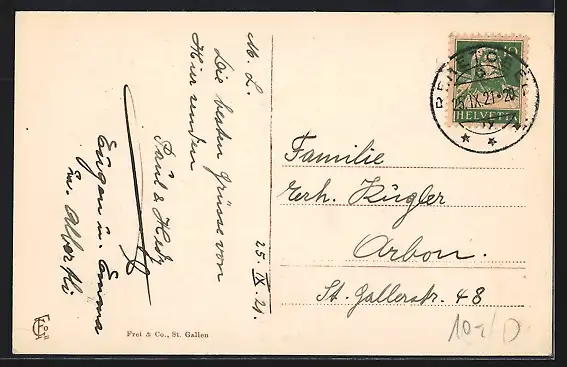 M. L.
Die besten Grüsse von
Hier senden
Paul & Hedy
Eugen u. Emma
u. Alberti
25. IX. 21.
10
HELVETIA
25.IX.21-20
Familie
Erh. Kugler
Arbon.
St. Gallerstr. 48
10-/D
Frei & Co., St. Gallen